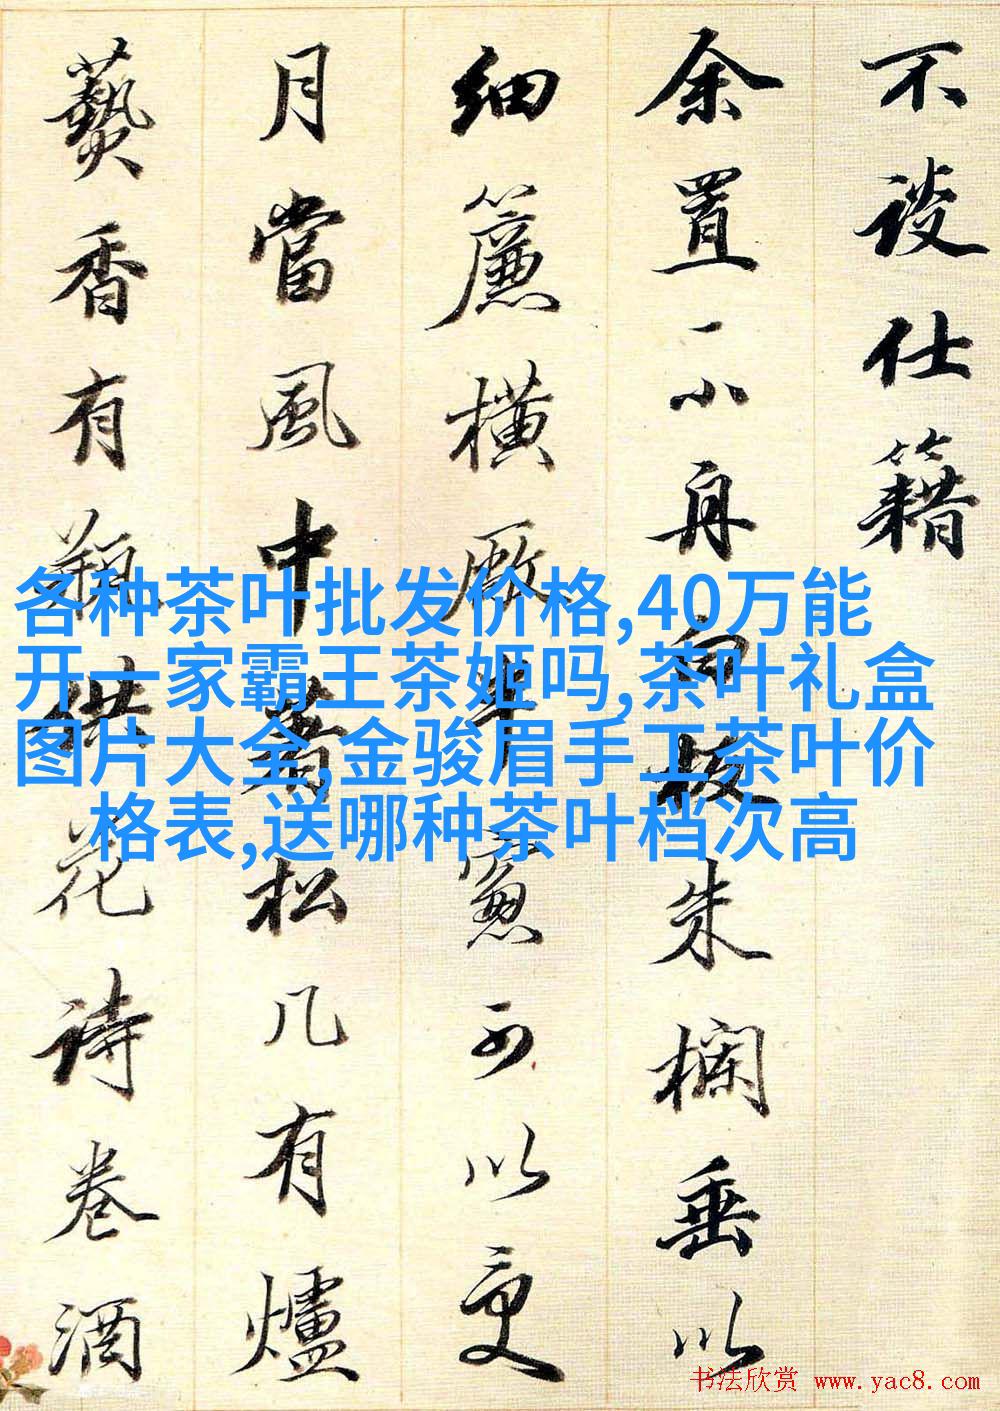 不談仕籍
余置一小舟白板朱欄垂以
細簾橫廠半窻可以更
月當風中着松几有爐
爇香有供花詩卷酒
各种茶叶批发价格,40万能
开一家霸王茶姬吗,茶叶礼盒
图片大全,金骏眉手工茶叶价
格表,送哪种茶叶档次高
书法欣赏 www.yac8.com